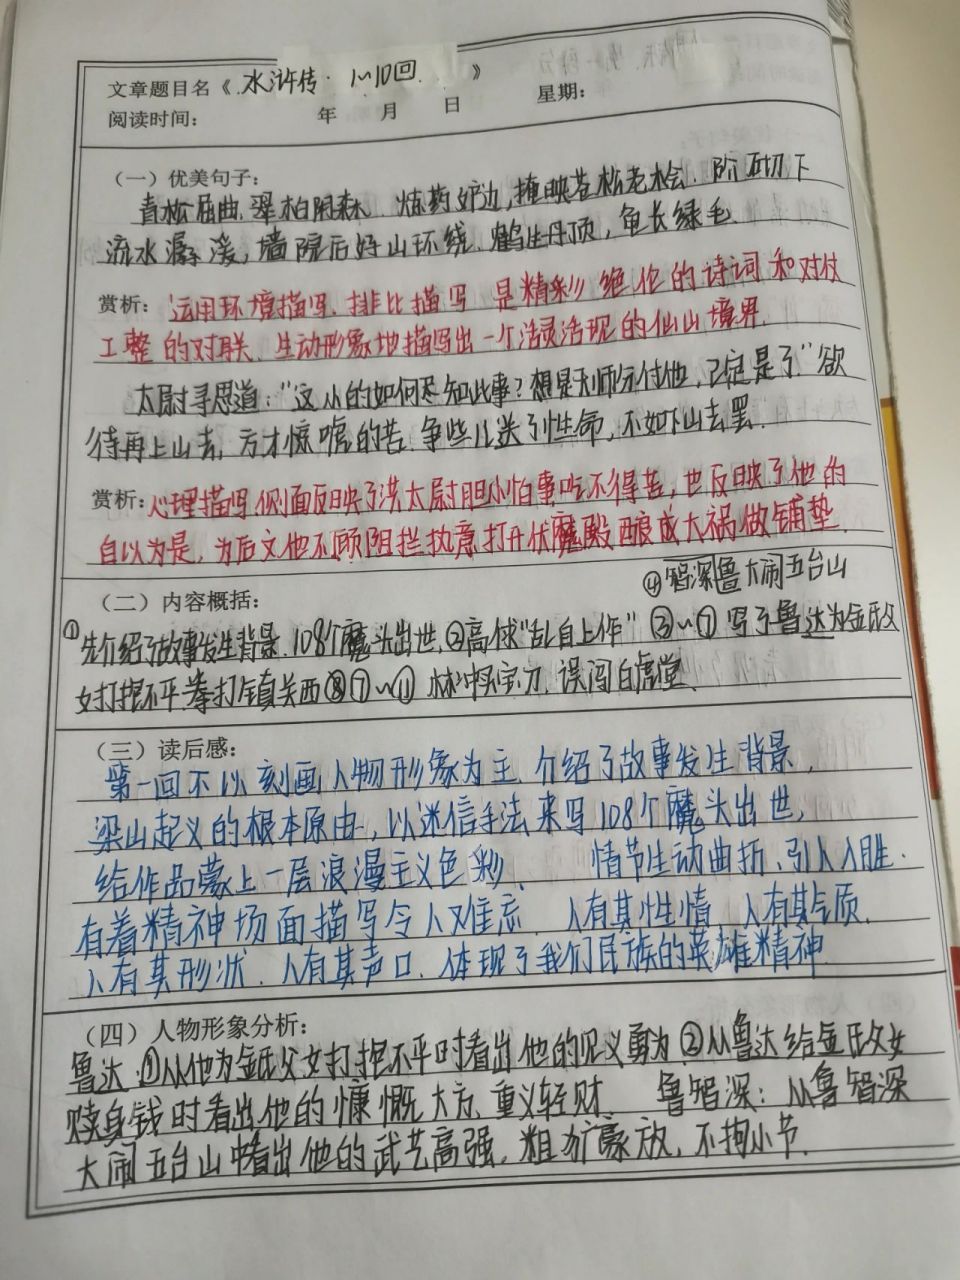 文章题目名《水浒传·1~10回》
阅读时间: 年 月 日 星期:
(一)优美句子:
青松屈曲,翠柏阴森.炼药炉边,掩映苍松老桧.阶砌下
流水潺湲,墙院后好山环绕.鹤生丹顶,龟长绿毛.
赏析:运用环境描写.排比描写 是精彩绝伦的诗词和对仗
工整的对联、生动形象地描写出一个活灵活现的仙山境界.
太尉寻思道:“这小的如何尽知此事?想是天师分付他,已定是了”欲
待再上山去,方才惊唬的苦.争些儿送了性命,不如下山去罢.
赏析:心理描写侧面反映了洪太尉胆小怕事吃不得苦,也反映了他的
自以为是,为后文他不顾阻拦执意打开伏魔殿酿成大祸做铺垫.
④智深鲁大闹五台山
(二)内容概括:
①先介绍了故事发生背景.108个魔头出世,②高俅“乱自上作” ③~⑦写了鲁达为金氏父
女打抱不平.拳打镇关西⑧⑦~⑪林冲买宝刀.误闯白虎堂.
(三)读后感:
第一回不以刻画人物形象为主.介绍了故事发生背景,
梁山起义的根本原由,以迷信手法来写108个魔头出世,
给作品蒙上一层浪漫主义色彩、 情节生动曲折、引人入胜.
有着精神场面描写令人难忘. 人有其性情 人有其气质.
人有其形状.人有其声口.体现了我们民族的英雄精神.
(四)人物形象分析:
鲁达:①从他为金氏父女打抱不平时看出他的见义勇为②从鲁达给金氏父女
赎身钱时看出他的慷慨大方、重义轻财. 鲁智深:从鲁智深
大闹五台山中看出他的武艺高强,粗犷豪放,不拘小节.